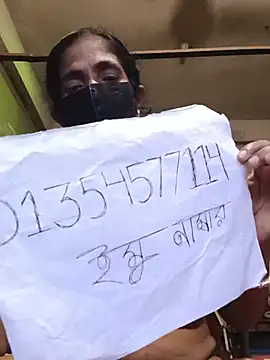 01354577114
ইমু নাম্বার